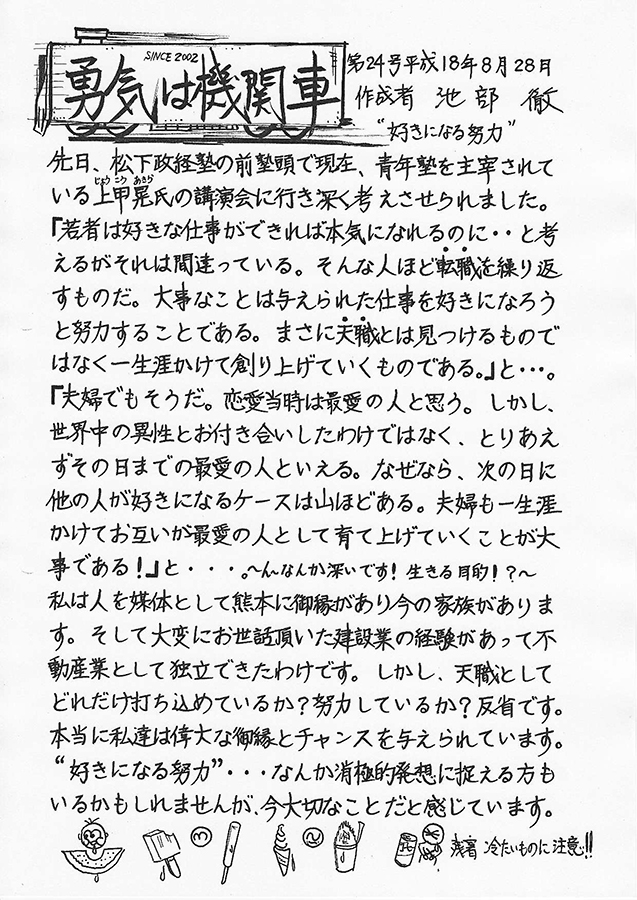 SINCE 2002
勇気は機関車
第24号平成18年8月28日
作成者 池部 徹
“好きになる努力”
先日、松下政経塾の前塾頭で現在、青年塾を主宰されて
いる上甲晃氏の講演会に行き深く考えさせられました。
じょうこう あきら
「若者は好きな仕事ができれば本気になれるのに・・と考
えるがそれは間違っている。そんな人ほど転職を繰り返
すものだ。大事なことは与えられた仕事を好きになろう
と努力することである。まさに天職とは見つけるもので
はなく一生涯かけて創り上げていくものである。」と・・・。
「夫婦でもそうだ。恋愛当時は最愛の人と思う。しかし、
世界中の異性とお付き合いしたわけではなく、とりあえ
ずその日までの最愛の人といえる。なぜなら、次の日に
他の人が好きになるケースは山ほどある。夫婦も一生涯
かけてお互いが最愛の人として育て上げていくことが大
事である!」と・・・。〜んなんか深いです!生きる目的!?〜
私は人を媒体として熊本に御縁があり今の家族がありま
す。そして大変にお世話頂いた建設業の経験があって不
動産業として独立できたわけです。しかし、天職として
どれだけ打ち込めているか?努力しているか?反省です。
本当に私達は偉大な御縁とチャンスを与えられています。
“好きになる努力”・・・なんか消極的発想に捉える方も
いるかもしれませんが、今大切なことだと感じています。
残暑 冷たいものに注意!!